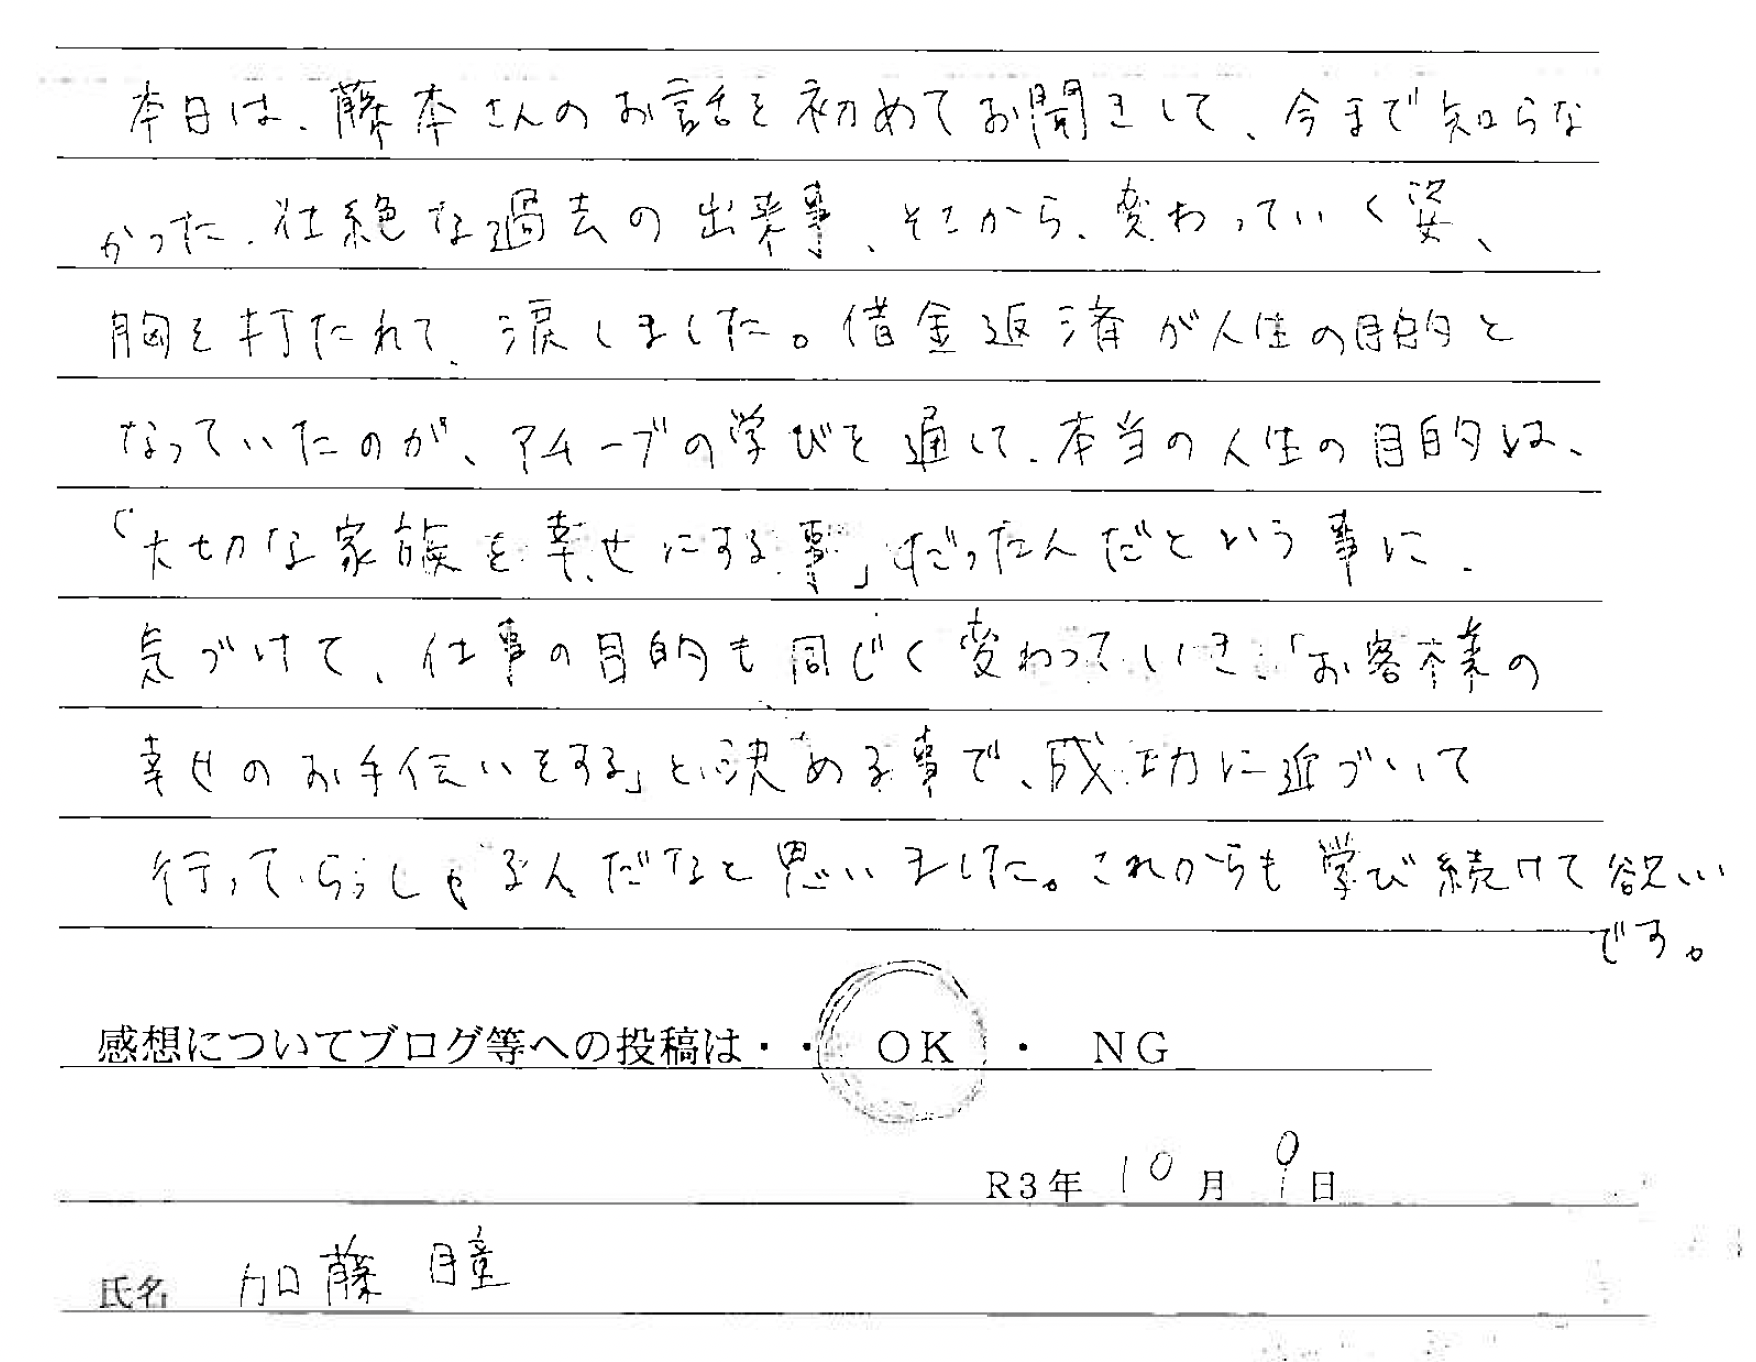 本日は、藤本さんのお話を初めてお聞きして、今まで知らな
かった、壮絶な過去の出来事、そこから、変わっていく姿、
胸を打たれて、涙しました。借金返済が人生の目的と
なっていたのが、アチーブの学びを通して、本当の人生の目的は、
「大切な家族を幸せにする事」だったんだという事に、
気づけて、仕事の目的も同じく変わっていき、「お客様の
幸せのお手伝いをする」と決める事で、成功に近づいて
行ってらっしゃるんだなと思いました。これからも学び続けて欲しい
です。
感想についてブログ等への投稿は・・ OK ・ NG
R3年 10月 9日
氏名 加藤 瞳